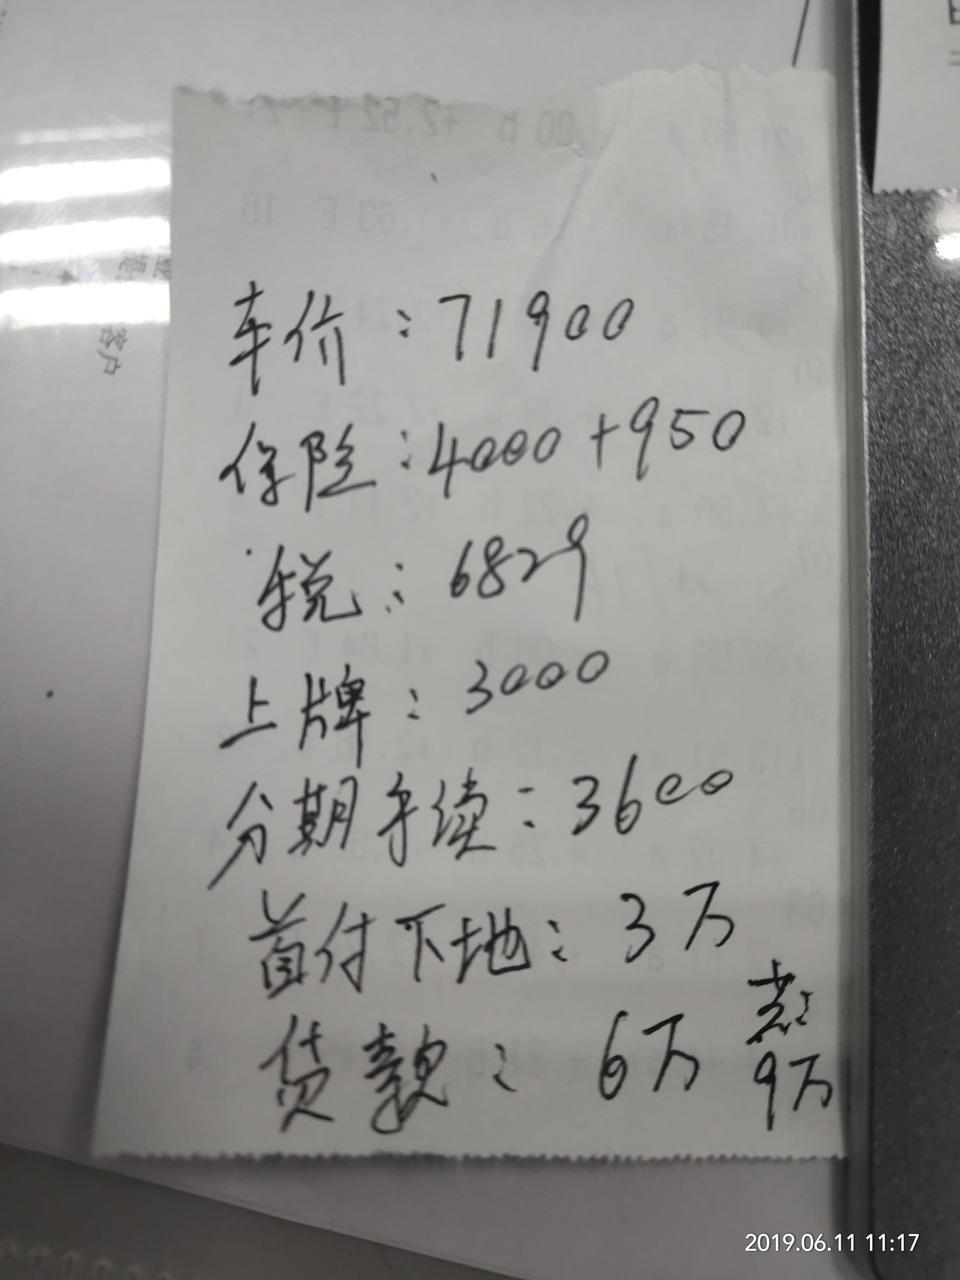 车价：71900
保险：4000+950
税：6829
上牌：3000
分期手续：3600
首付下地：3万
贷款：6万
9万
客户
2019.06.11 11:17